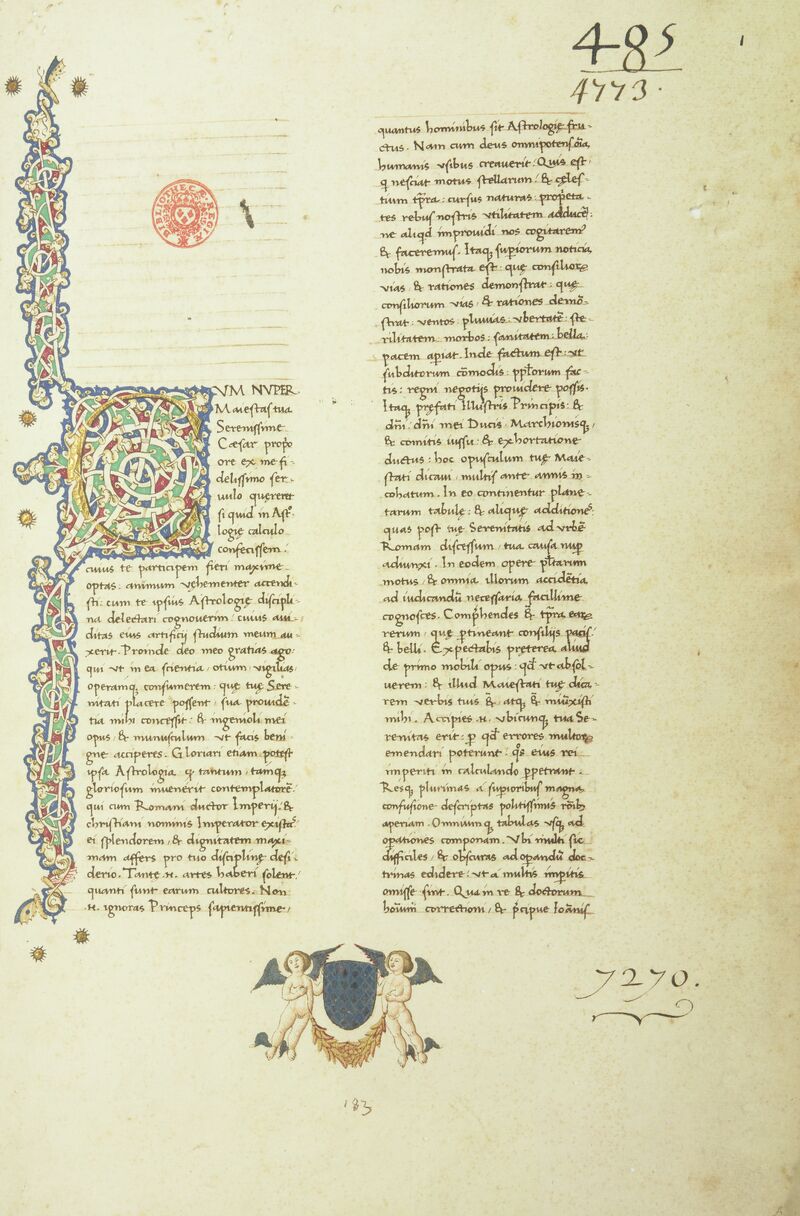 485
4773.
1
BIBLIOTHECÆ REGIÆ
CVM NVPER
Maiestas tua
Serenissime
Cæsar propo
ore ex me fi-
delissimo ser-
uulo quereret
si quid in Ast
logię calculo
confecissem.
cuius te participem fieri maxime
optas. animum vehementer accendi-
sti: cum te ipsius Astrologię discipli
na delectari cognouerim: cuius aui-
ditas eius artificij studium meum au-
xerit. Proinde deo meo gratias ago:
qui vt in ea scientia / otium / vigilias
operamq; consumerem: quę tuę Sere-
nitati placere possent / sua prouidē-
tia mihi concessit: & ingenioli mei
opus / & munusculum vt facis beni
gne acciperes. Gloriari etiam potest
ipsa Astrologia q tantum / tamq;
gloriosum inuenerit contemplatorē:
qui cum Romani ductor Imperij. &
christiani nominis Imperator existas
ei splendorem / & dignitatem maxi-
mam affers pro tuo disciplinę desi-
derio. Tante .n. artes haberi solent /
quanti sunt earum cultores. Non
.n. ignoras Princeps sapientissime /
quantus hominibus sit Astrologię fru-
ctus. Nam cum deus omnipotens oīa,
humanis vsibus creauerit: Quis est
q nesciat motus stellarum / & cęles-
tium tpra: cursus naturas: propęta-
tes rebus nostris vtilitatem adducē:
ne aliqd improuidi nos cogitarem
& faceremus. Itaq; supiorum noticia
nobis monstrata est: quę consilior
vias / & rationes demonstrat: quę
consiliorum vias / & rationes demō-
strat: ventos pluuias: vbertatē: ste
rilitatem morbos: sanitatem: bella:
pacem apiat. Inde factum est: vt
subditorum cōmodis: pptorum fac
tis: regni negotijs prouidere possis.
Itaq; pręfati Illustris Principis: &
dn̄i. dn̄i mei Ducis / Marchionisq; /
& comitis iussu: & exhortatione
ductus: hoc opusculum tuę Maie-
stati dicaui / multis ante annis in-
cohatum. In eo continentur plane-
tarum tabulę: & alique additiones:
quas post tuę Serenitatis ad vrbē
Romam discessum / tua causa nup
adiunxi. In eodem opere pltarum
motus / & omnia illorum accidētia
ad iudicandū necessaria facillime
cognosces. Comphendes & tpra ear
rerum / quę ptineant consilijs pacis
& belli. Expectabis pręterea aliud
de primo mobili opus: qd vt absol-
uerem: & illud Maiestati tuę dica-
rem verbis tuis & atq; & iniūxisti
mihi. Accipies .n. vbicunq; tua Se-
renitas erit: p qd errores multor
emendari poterunt: qs eius rei
imperiti in calculando ppetrant.
Resq; plurimas a supioribus magna
confusione descriptas politissimis rōib;
aperiam. Omniumq; tabulas vsq; ad
opationes componam. Vbi multi sic
difficiles / & obscuras ad opandū doc-
trinas edidere: vt a multis impitis
omisse sint. Qua in re & doctorum
hoīum correctioni / & pcipue Ioānis
7270.
183